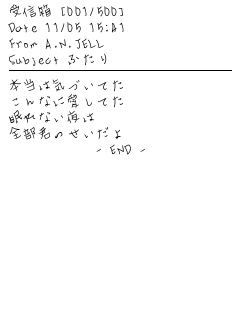 受信箱 [001/500]
Date 11/05 15:21
From A.N.JELL
Subject ふたり
本当は気づいてた
こんなに愛してた
眠れない夜は
全部君のせいだよ
- END -